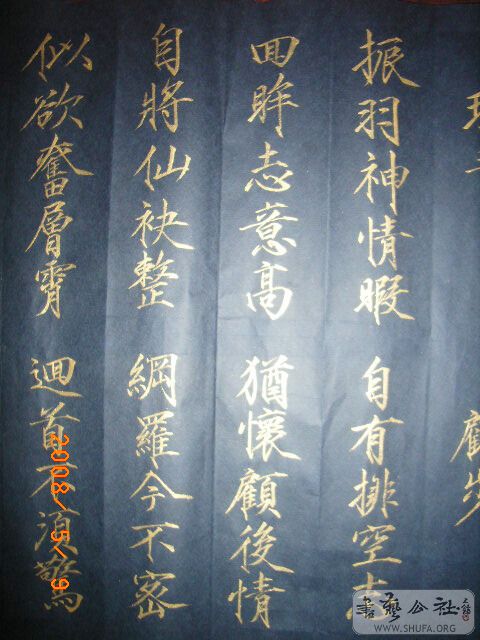 顧步
振羽神情暇 自有排空
囬眸志意高 猶懷顧後情
自將仙袂整 綱羅今不密
似欲奮層霄 迴首不須驚
2008/5/9
書藝公社
WWW.SHUFA.ORG